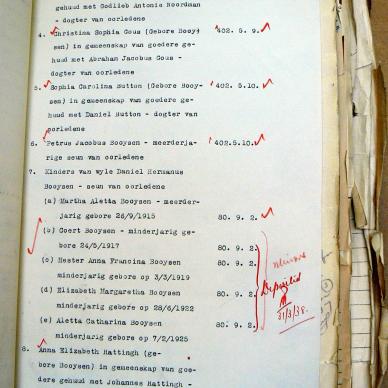 gehuud met Godlieb Antonie Noordman
- dogter van oorledene
4. Christina Sophia Gous (Gebore Booy- 402. 5. 9.
sen) in gemeenskap van goedere ge-
huud met Abraham Jacobus Gous -
dogter van oorledene
5. Sophia Carolina Hutton (Gebore Booy- 402. 5.10.
sen) in gemeenskap van goedere ge-
huud met Daniel Hutton - dogter van
oorledene
6. Petrus Jacobus Booysen - meerderja- 402.5.10.
rige seun van oorledene
7. Kinders van wyle Daniel Hermanus
Booysen - seun van oorledene
(a) Martha Aletta Booysen - meerder-
jarig gebore 26/9/1915 80. 9. 2.
(b) Coert Booysen - minderjarig ge-
bore 24/5/1917 80. 9. 2.
(c) Hester Anna Francina Booysen
minderjarig gebore op 3/3/1919 80. 9. 2.
(d) Elizabeth Margaretha Booysen
minderjarig gebore op 28/6/1922 80. 9. 2.
(e) Aletta Catharina Booysen
minderjarig gebore op 7/2/1925 80. 9. 2.
Deposited
31/3/38.
8. Anna Elizabeth Hattingh (ge-
bore Booysen) in gemeenskap van goe-
dere gehuud met Johannes Hattingh -